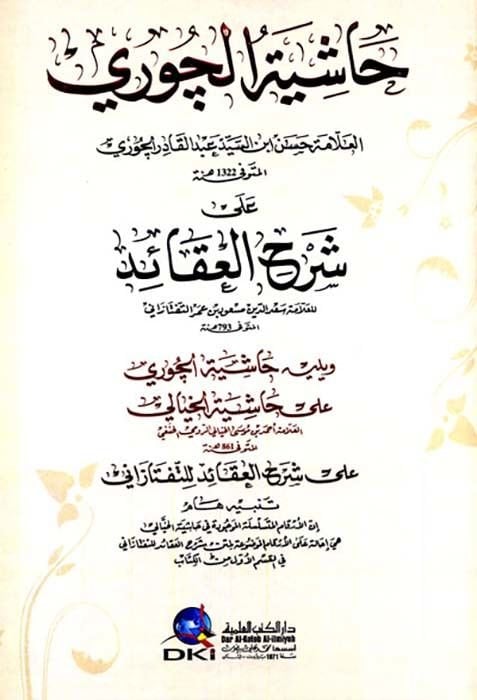 حاشية الچوري
العلامة حسن ابن السيد عبد القادر الچوري
المتوفى 1322 هـنة
على
شرح العقائد
للعلامة سعد الدين مسعود بن عمر التفتازاني
المتوفى 793 هـنة
ويليه حاشية الچوري
على حاشية الخيالي
العلامة أحمد بن موسى الخيالي الرومي الحنفي
المتوفى 861 هـنة
على شرح العقائد للتفتازاني
تنبيه هام
إن الأرقام المتسلسلة الموجودة في حاشية الخيالي
هي إحالة على الأرقام الموضوعة لمتن شرح العقائد للتفتازاني
في القسم الأول من الكتاب
دار الكتب العلمية
Dar Al-Kotob Al-ilmiyah
DKi
أسسها محمد علي بيضون
سنة 1971 بيروت - لبنان